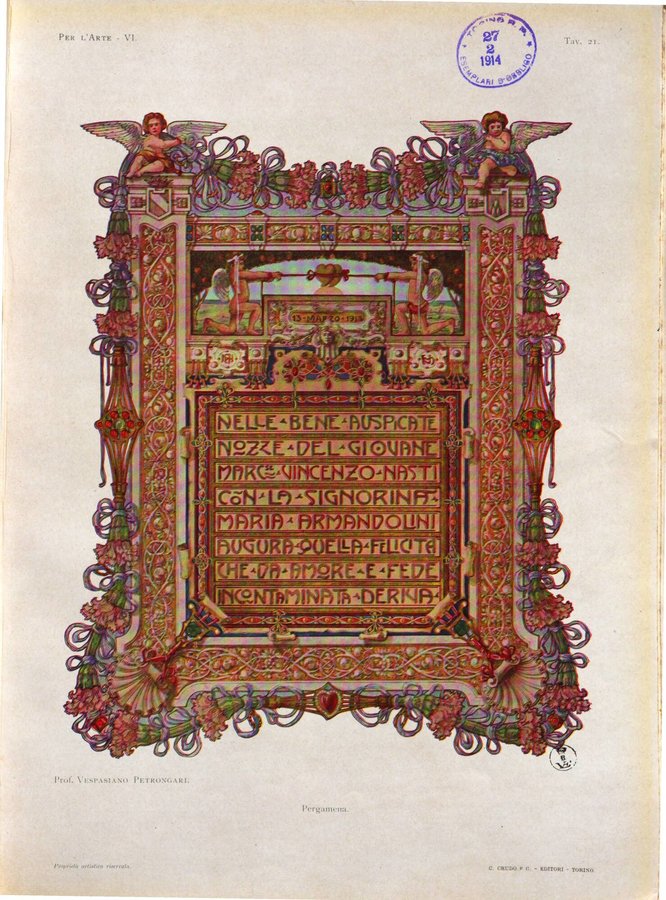 PER L'ARTE - VI.
TAV. 21.
TORINO R. P.
27
2
1914
ESEMPLARI D'OBBLIGO
13 - MARZO - 1913
NELLE BENE AUSPICATE
NOZZE DEL GIOVANE
MARC.SE VINCENZO NASTI
CON LA SIGNORINA
MARIA ARMANDOLINI
AUGURA QUELLA FELICITÀ
CHE DA AMORE E FEDE
INCONTAMINATA DERIVA
Prof. VESPASIANO PETRONGARI.
Pergamena.
Proprietà artistica riservata.
C. CRUDO & C. - EDITORI - TORINO